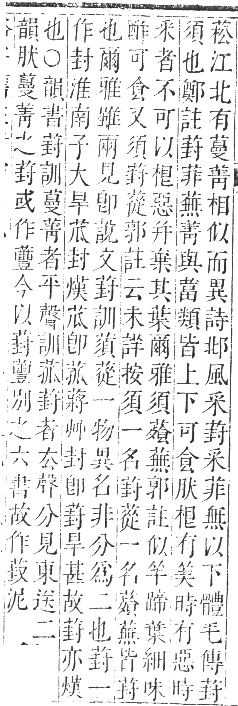 菘江北有蔓菁相似而異詩邶風采葑采菲無以下體毛傳葑
須也鄭註葑菲蕪菁與葍類皆上下可食肰根有美時有惡時
采者不可以根惡幷棄其葉爾雅須薞蕪郭註似羊蹄葉細味
酢可食又須葑蓯郭註云未詳按須一名葑蓯一名薞蕪皆葑
也爾雅雖兩見卽說文葑訓須蓯一物異名非分爲二也葑一
作封淮南子大旱苽封熯苽卽菰蔣艸封卽葑旱甚故葑亦熯
也○韻書葑訓蔓菁者平聲訓菰葑者去聲分見東送二
韻肰蔓菁之葑或作蘴今以葑蘴別之六書故作䔍泥